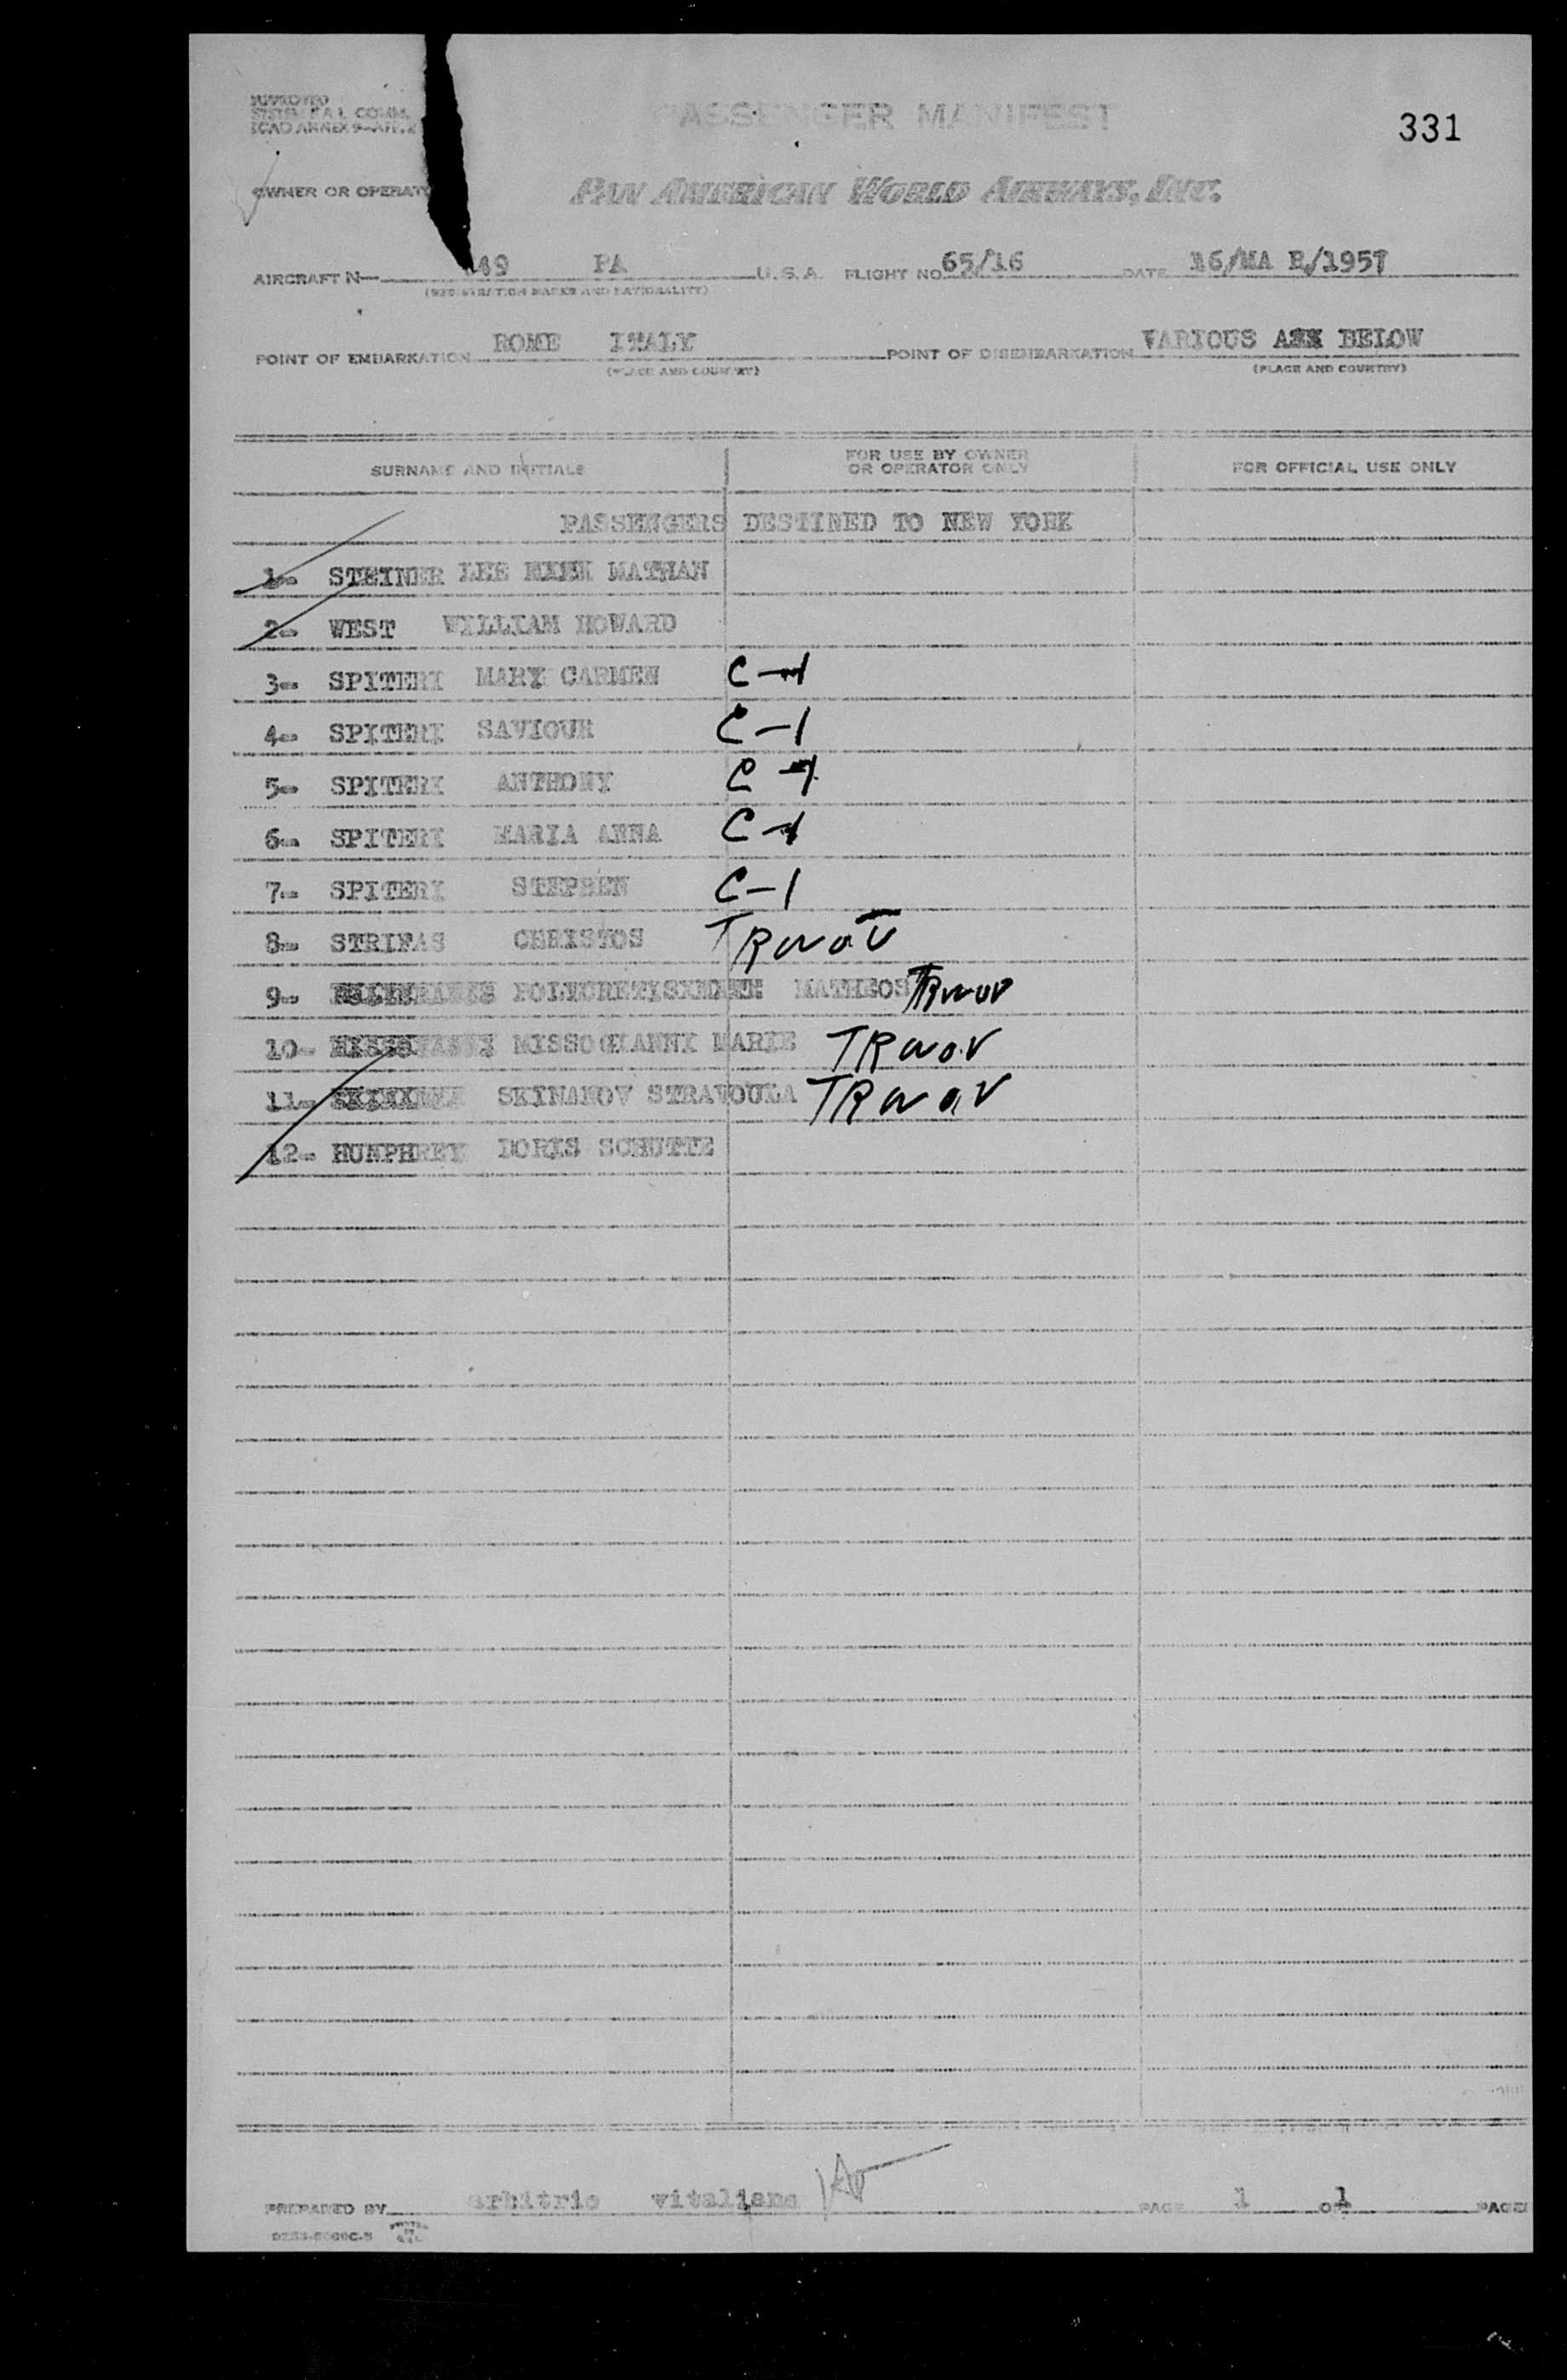 PASSENGER MANIFEST
331
ICAO ANNEX 9-
OWNER OR
PAN AMERICAN WORLD AIRWAYS, INC.
AIRCRAFT N 49 PA U.S.A. FLIGHT NO 65/16 DATE 16/MA R/1957
(REGISTRATION MARKS AND NATIONALITY)
POINT OF EMBARKATION ROME ITALY POINT OF DISEMBARKATION VARIOUS BELOW
(PLACE AND COUNTRY) (PLACE AND COUNTRY)
SURNAME AND INITIALS FOR USE BY OWNER OR OPERATOR ONLY FOR OFFICIAL USE ONLY
PASSENGERS DESTINED TO NEW YORK
1- STEINER LEE MATHAN
2- WEST WILLIAM HOWARD
3- SPITERI MARY CARMEN C-1
4- SPITERI SAVIOUR C-1
5- SPITERI ANTHONY C-1
6- SPITERI MARIA ANNA C-1
7- SPITERI STEPHEN C-1
8- STRIFAS CHRISTOS
9- MATHEOS
10- MISSOGIANNI MARIE
11- SKINANOV STRAVOULA
12- HUMPHREY DORIS SCHUTTE
PREPARED BY arbitrio vitaliano PAGE 1 OF 1 PAGES